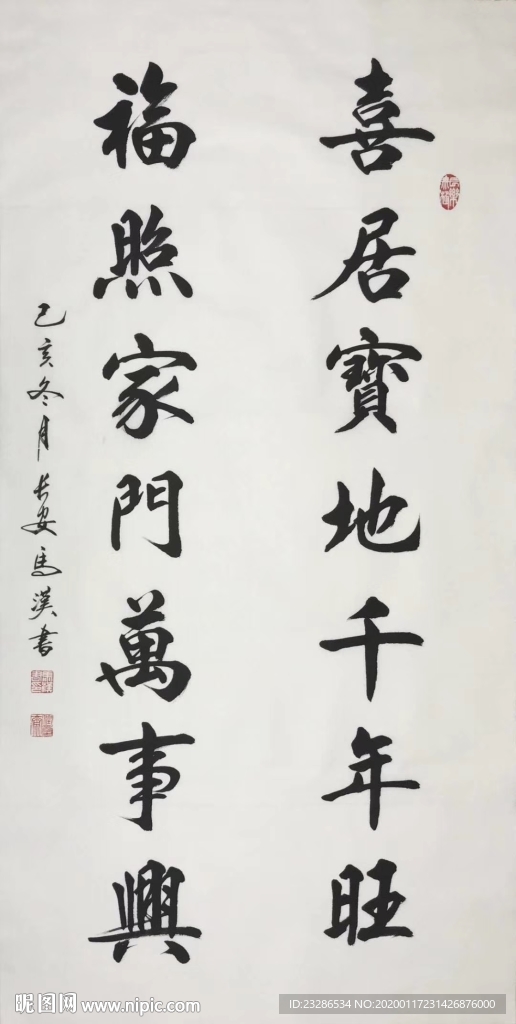 喜居寶地千年旺
福照家門萬事興
己亥冬月長安馬漢書
昵图网 www.nipic.com
ID:23286534 NO:20200117231426876000